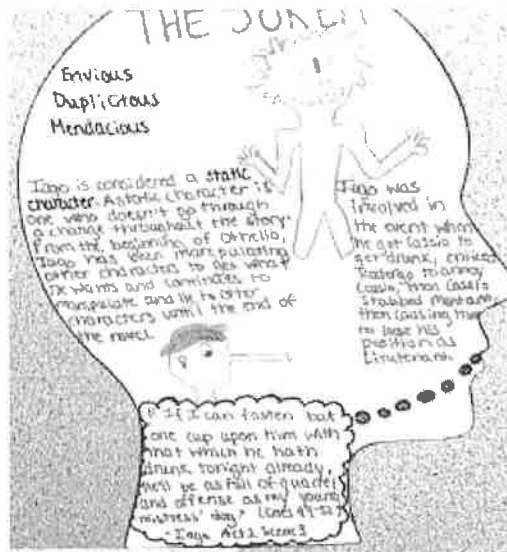 THE JOKER
Envious
Duplicitous
Mendacious
Iago is considered a static
character. A static character is
one who doesn't go through
a change throughout the story.
From the beginning of Othello,
Iago has been manipulating
other characters to get what
he wants and continues to
manipulate and lie to other
characters until the end of
the novel.
Iago was
involved in
the event when
he got Cassio to
get drunk, enticed
Roderigo to annoy
Cassio, then Cassio
stabbed Montano
then causing him
to lose his
position as
Lieutenant
" If I can fasten but
one cup upon him with
that which he hath
drunk tonight already,
he'll be as full of quarrel
and offense as my young
mistress' dog." (Lines 49-52)
- Iago Act 2 Scene 3